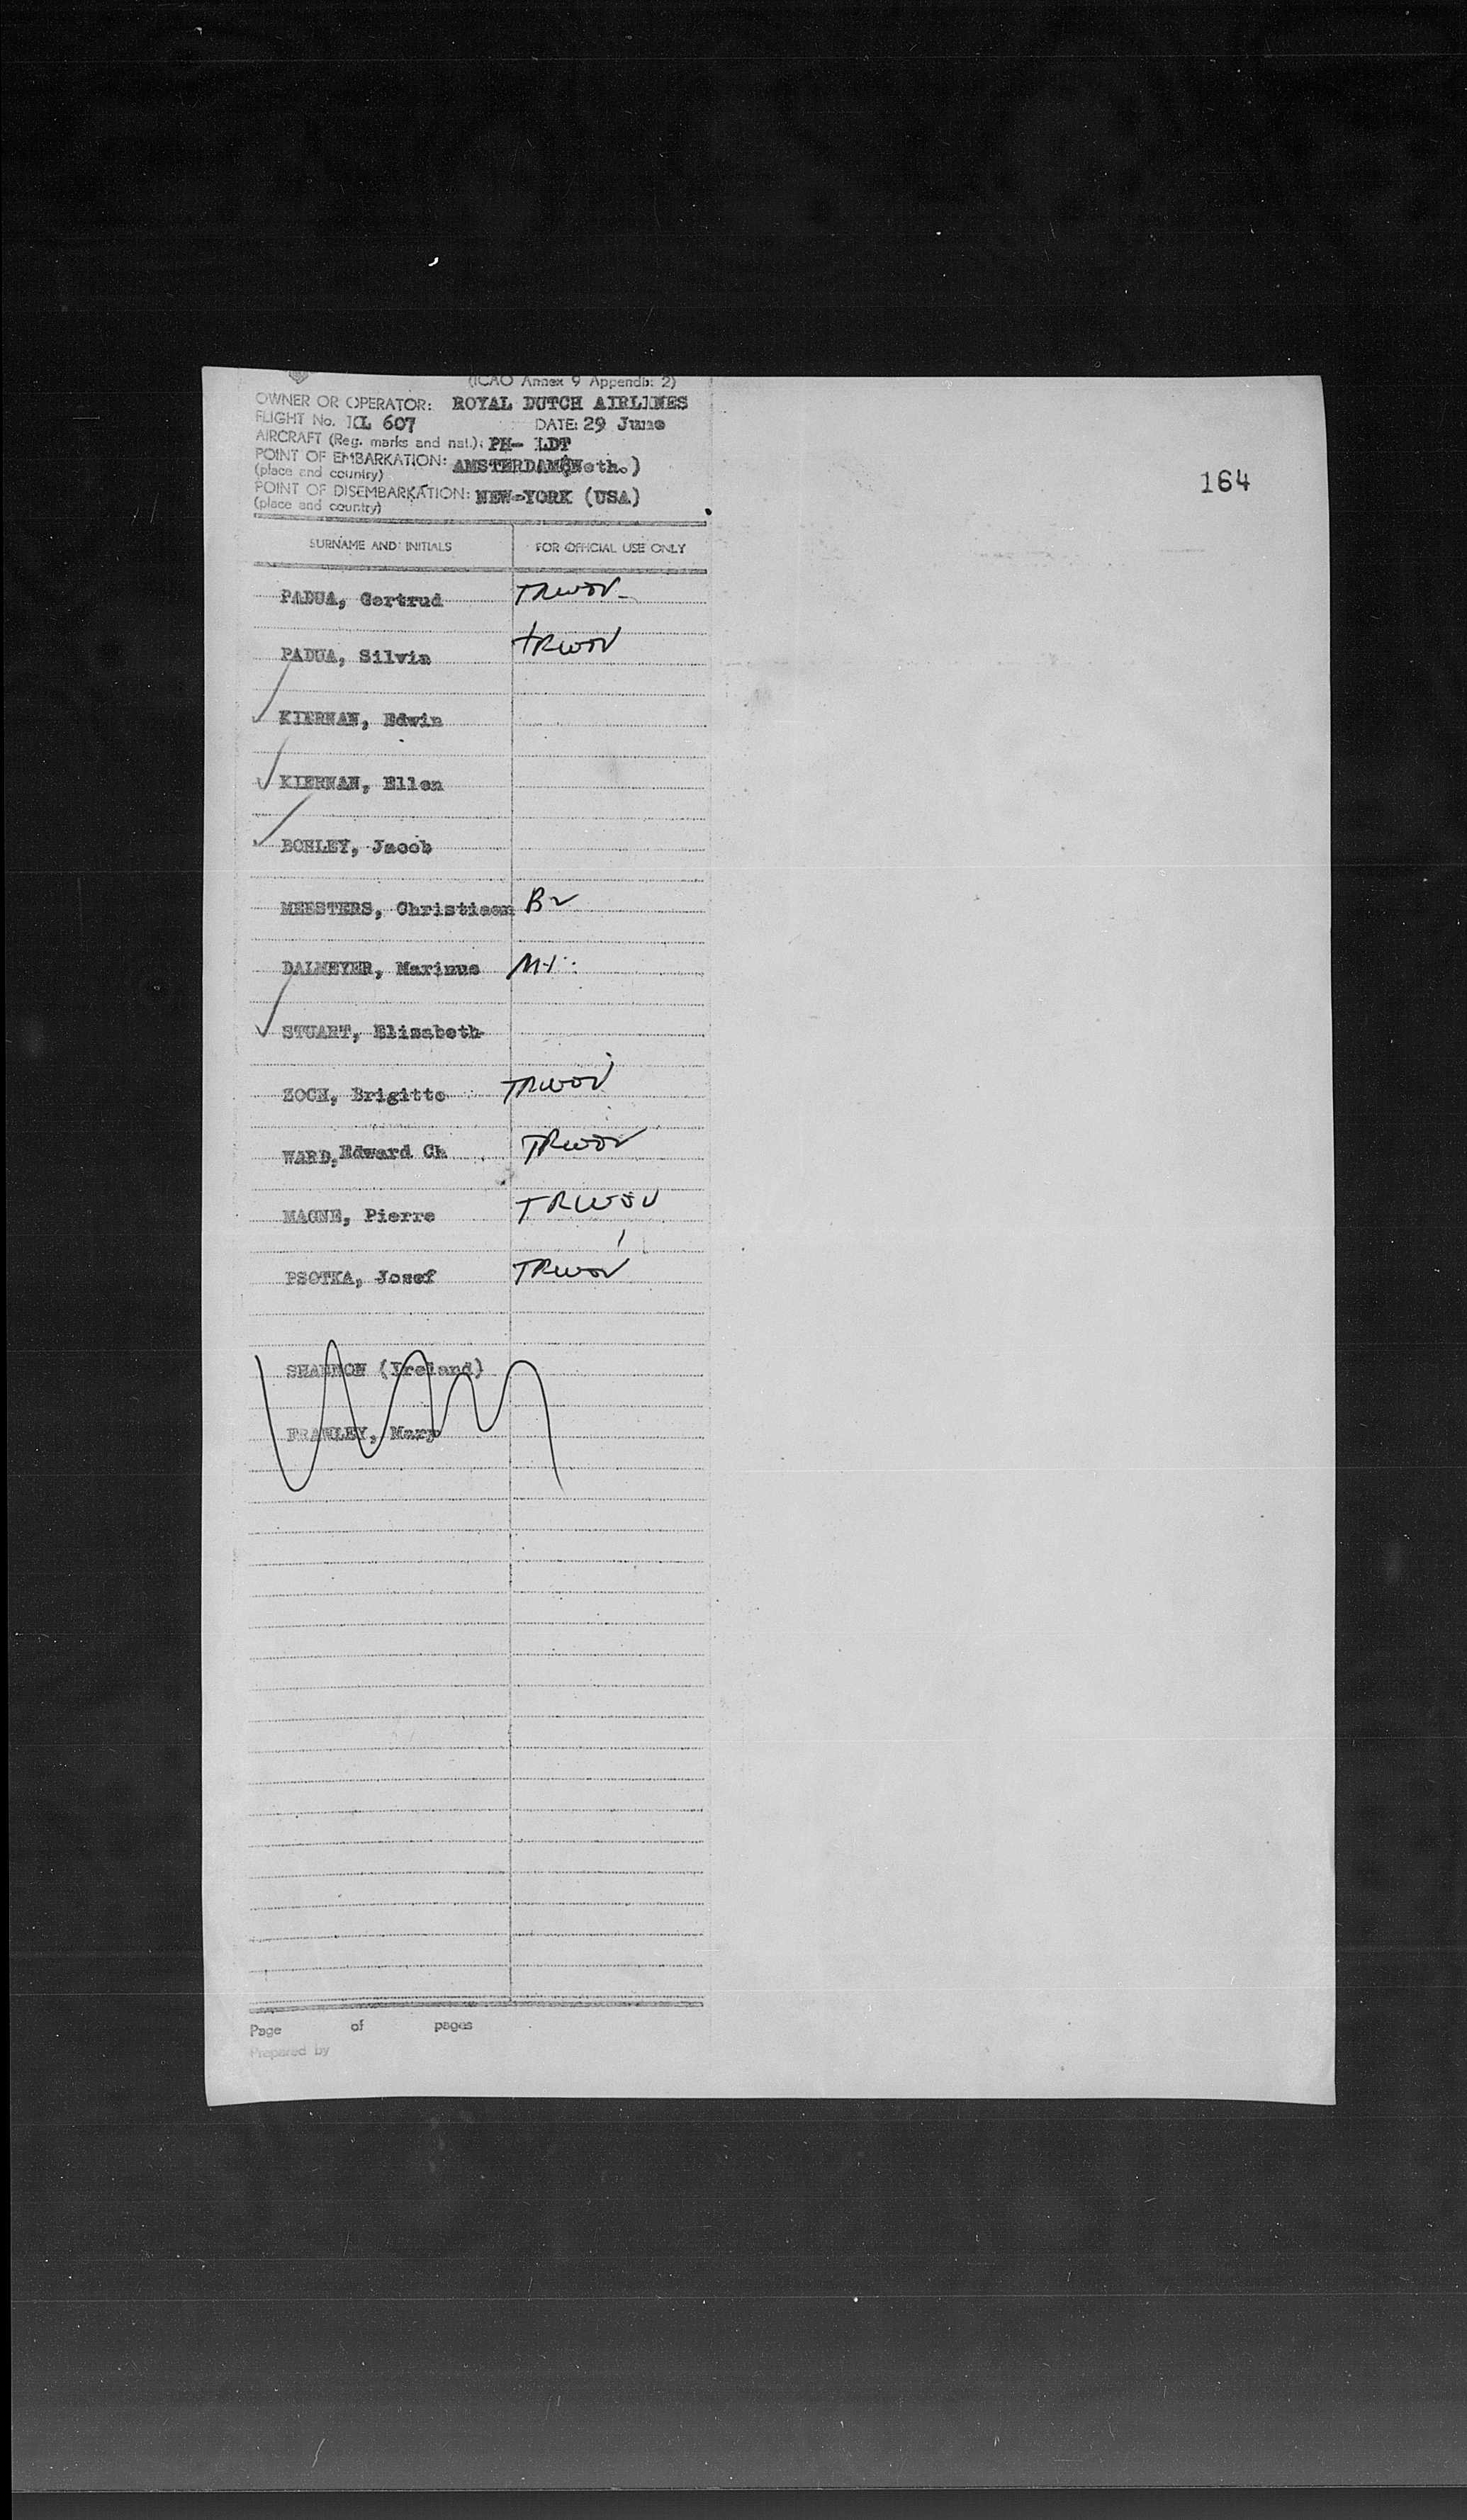 (ICAO Annex 9 Appendix 2)
OWNER OR OPERATOR: ROYAL DUTCH AIRLINES
FLIGHT No. KL 607 DATE: 29 June
AIRCRAFT (Reg. marks and nat.): PH- LDT
POINT OF EMBARKATION: AMSTERDAM(Neth.)
(place and country)
164
POINT OF DISEMBARKATION: NEW-YORK (USA)
(place and country)
SURNAME AND INITIALS FOR OFFICIAL USE ONLY
PADUA, Gertrud TRWOV
PADUA, Silvia TRWOV
KIERNAN, Edwin
KIERNAN, Ellen
BOHLEY, Jacob
MEESTERS, Christiaan B2
DALMEYER, Marinus
STUART, Elisabeth
ZOCH, Brigitte TRWOV
WARD, Edward Ch TRWOV
MAGNE, Pierre TRWOV
PSOTKA, Josef TRWOV
SHANNON (Ireland)
FRAWLEY, Mary
Page of pages
Prepared by